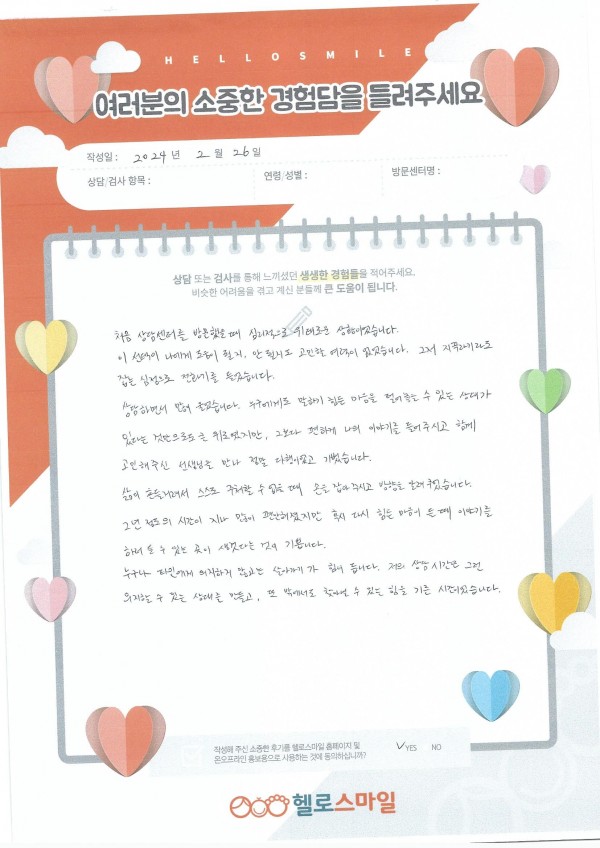 HELLOSMILE
여러분의 소중한 경험담을 들려주세요
작성일 : 2024 년 2 월 26 일
상담/검사 항목 : 연령/성별 : 방문센터명 :
상담 또는 검사를 통해 느끼셨던 생생한 경험들을 적어주세요.
비슷한 어려움을 겪고 계신 분들께 큰 도움이 됩니다.
처음 상담센터를 방문했을 때 심리적으로 위태로운 상황이었습니다.
이 선택이 나에게 도움이 될지, 안 될지도 고민할 여력이 없었습니다. 그저 지푸라기라도
잡는 심정으로 전화기를 들었습니다.
상담하면서 많이 울었습니다. 누구에게도 말하기 힘든 마음을 털어놓을 수 있는 상대가
있다는 것만으로도 큰 위로였지만, 그보다 편하게 나의 이야기를 들어주시고 함께
고민해주신 선생님을 만나 정말 다행이었고 기뻤습니다.
삶이 흔들거려서 스스로 구해할 수 없을 때 손을 잡아주시고 방향을 알려주셨습니다.
2년 정도의 시간이 지나 많이 편안해졌지만 혹시 다시 힘든 마음이 들 때 이야기를
하러 올 수 있는 곳이 생겼다는 것이 기쁩니다.
누구나 타인에게 의지하지 않고는 살아가기가 힘이 듭니다. 저의 상담시간은 그런
의지할 수 있는 상대를 만들고, 또 밖에서도 살아갈 수 있는 힘을 기른 시간이었습니다.
작성해 주신 소중한 후기를 헬로스마일 홈페이지 및
온오프라인 홍보용으로 사용하는 것에 동의하십니까? ✓YES NO
헬로스마일